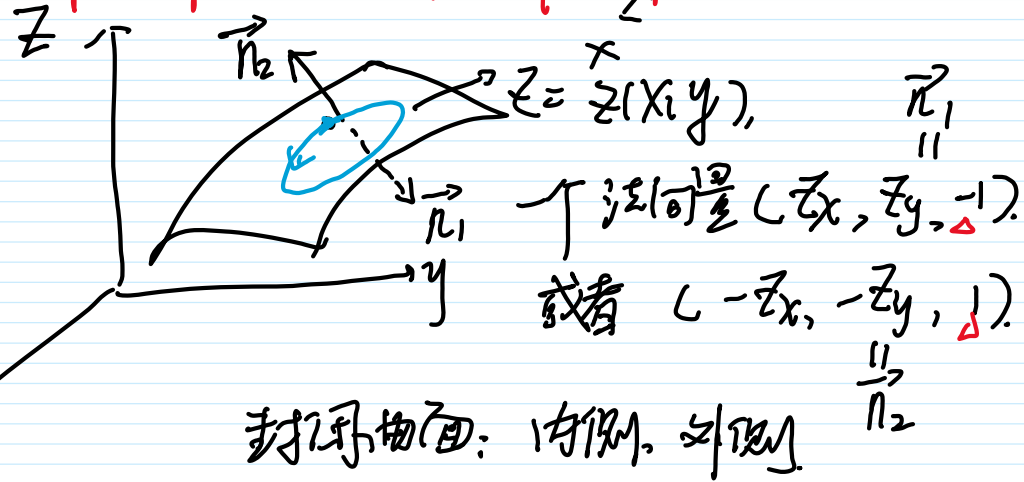 z
n₂→ z = z(x, y),
n₁→
||
一个法向量 (Zx, Zy, -1).
n₁→
y
或者 (-Zx, -Zy, 1).
||
n₂→
封闭曲面: 内侧、外侧.